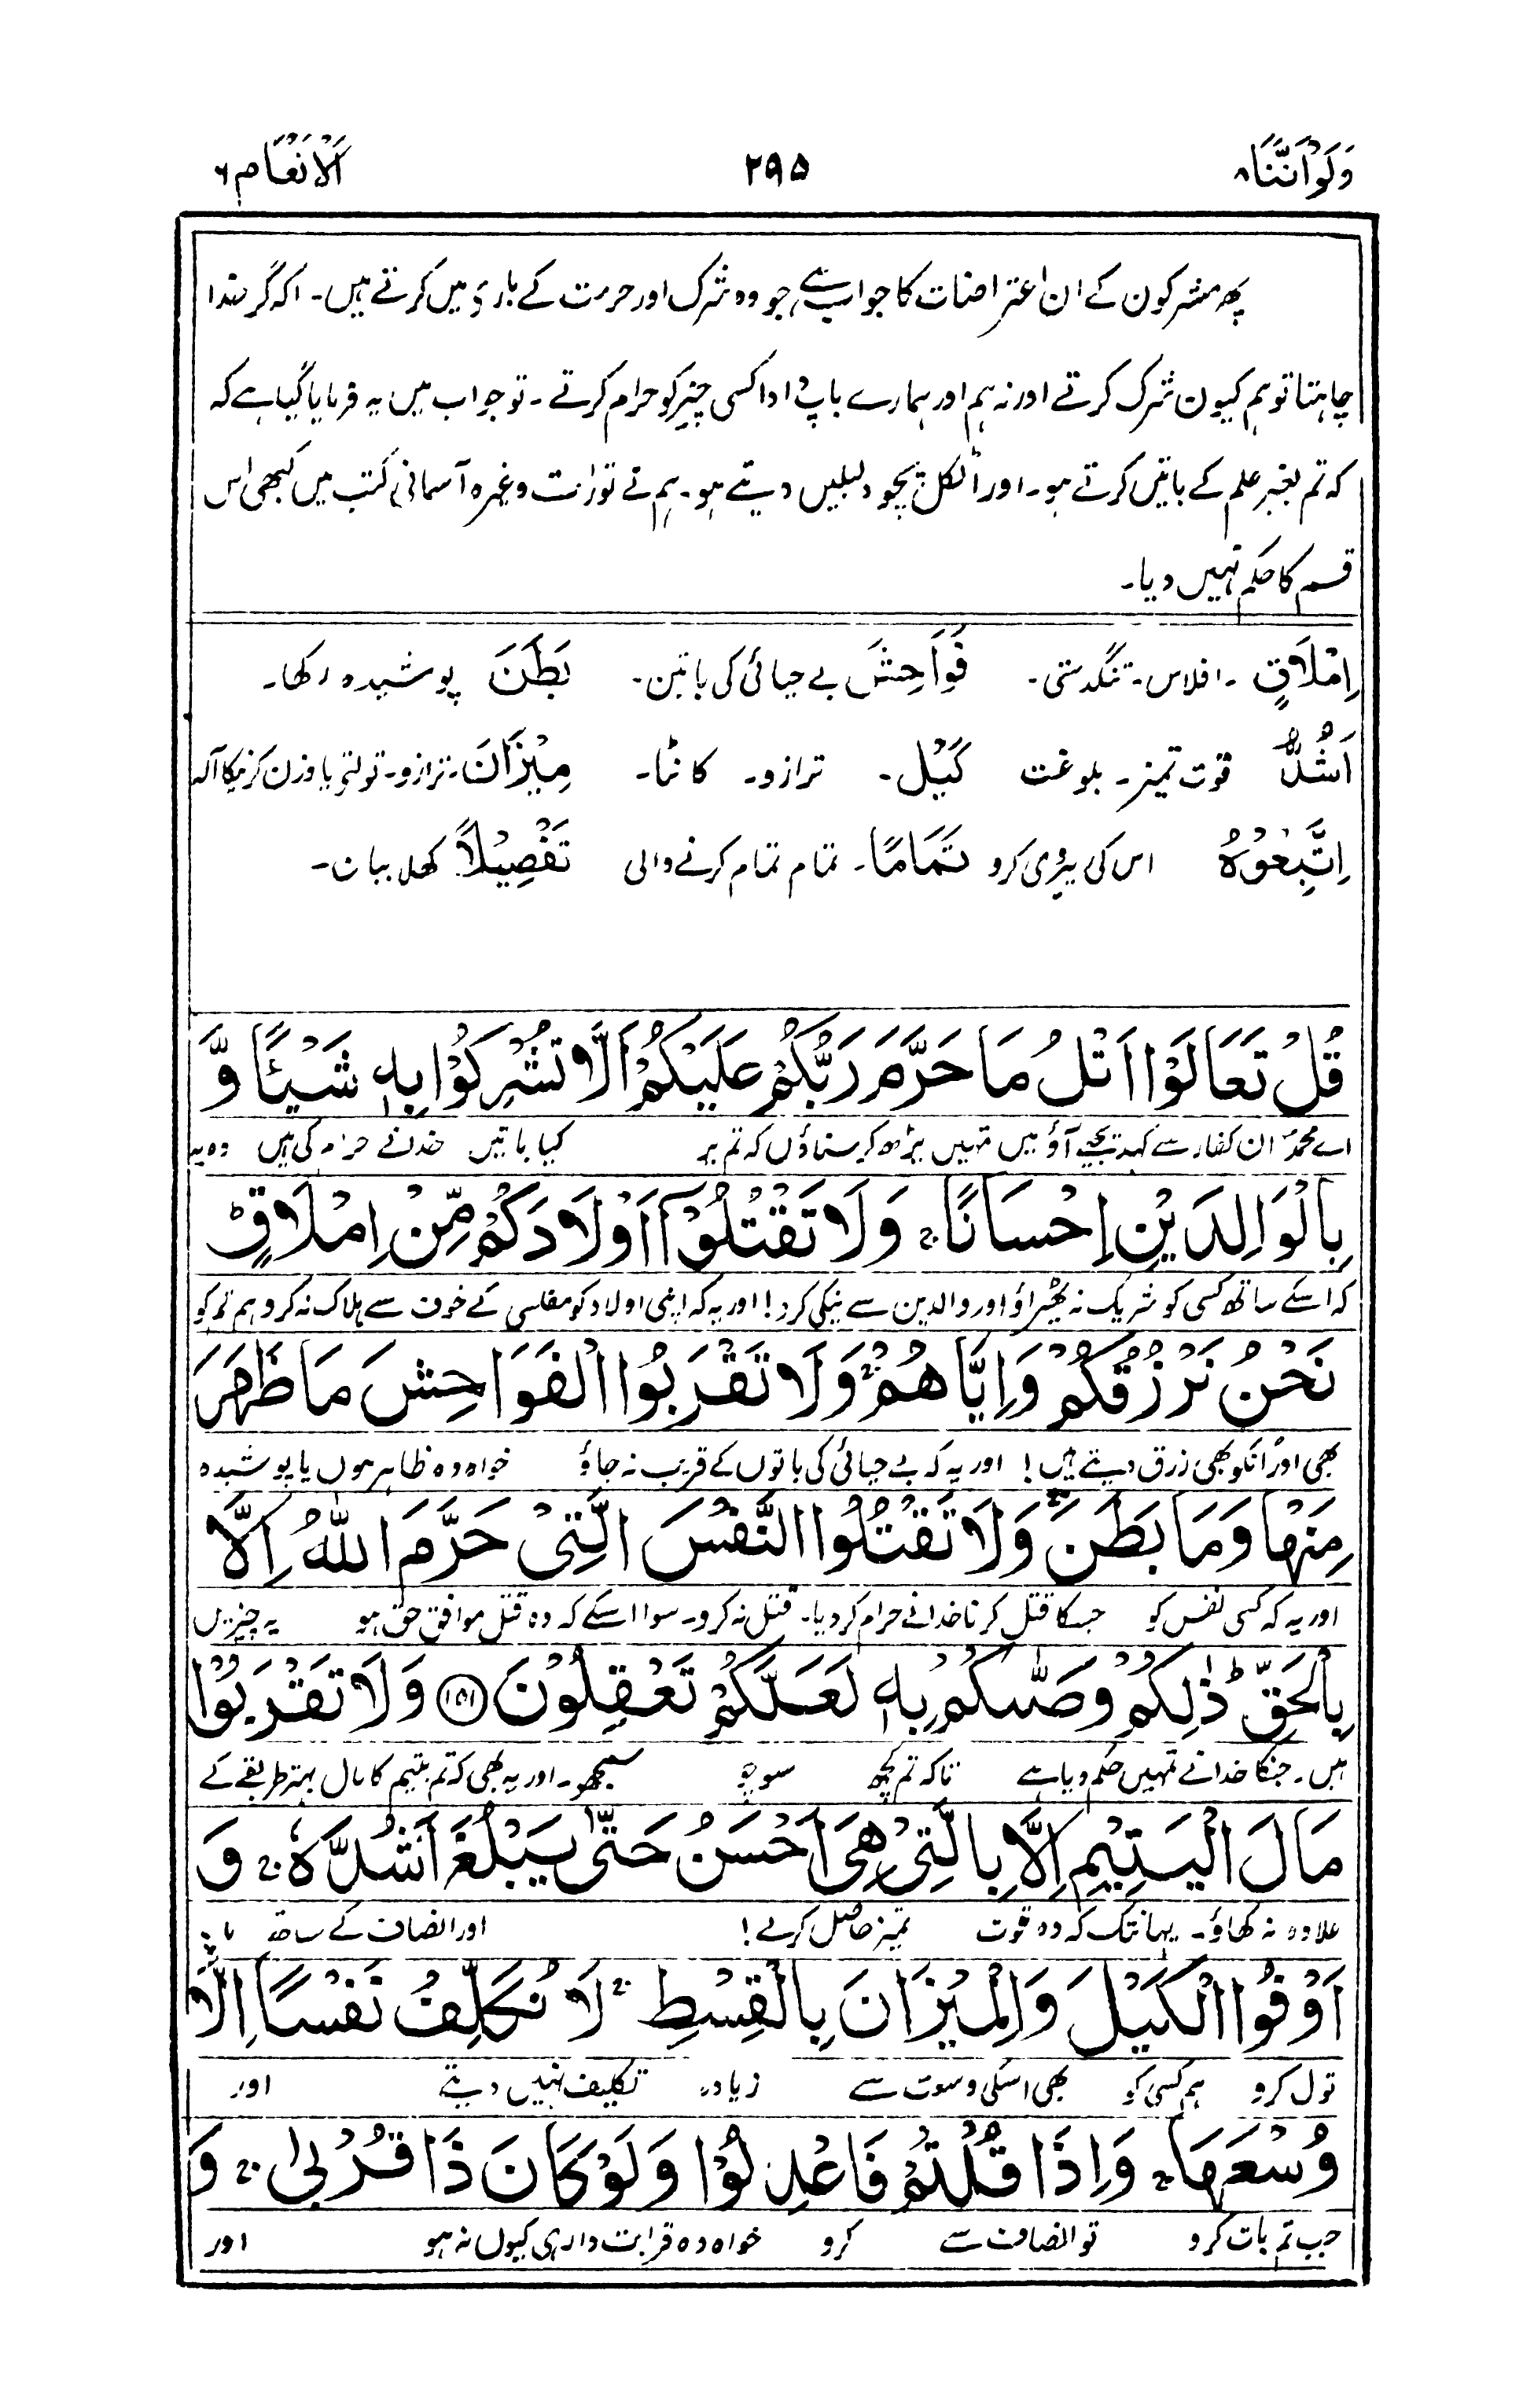 وَلَوْاَنَّنَا ۸ ۲۹۵ اَلْاَنْعَام ۶
پھر مشرکون کے ان اعتراضات کا جواب ہے، جو وہ شرک اور حرمت کے بارے میں کرتے ہیں۔ اکہ گر خدا
چاہتا تو ہم کیون شرک کرتے اور نہ ہم اور ہمارے باپ دادا کسی چیز کو حرام کرتے۔ تو جواب میں یہ فرمایا گیا ہے کہ
کہ تم بغیر علم کے باتیں کرتے ہو۔ اور اٹکل پچو دلیلیں دیتے ہو۔ ہم نے تورات وغیرہ آسمانی کتب میں کبھی اس
قسم کا حکم نہیں دیا۔
اِمْلَاقٍ۔ افلاس۔ تنگدستی۔ فَوَاحِشَ بے حیائی کی باتین۔ بَطَنَ پوشیدہ رکھا۔
اَشُدَّهٗ قوت تمیز۔ بلوغت کَیْل۔ ترازو۔ کانٹا۔ مِیْزَانَ۔ ترازو۔ تولنے یا وزن کرنیکا آلہ
اِتَّبِعُوْهُ اس کی پیروی کرو تَمَامًا۔ تمام تمام کرنے والی تَفْصِیْلاً کھلا بیان۔
قُلْ تَعَالَوْا اَتْلُ مَا حَرَّمَ رَبُّكُمْ عَلَیْكُمْ اَلَّا تُشْرِكُوْا بِهٖ شَیْـًٔا وَّ
اے محمدؐ ان کفار سے کہدیجیے آؤ میں تمہیں پڑھ کر سناؤں کہ تم پر کیا باتیں خدانے حرام کی ہیں وہ یہ
بِالْوَالِدَیْنِ اِحْسَانًا ۚ وَلَا تَقْتُلُوْۤا اَوْلَادَكُمْ مِّنْ اِمْلَاقٍ ؕ
کہ اسکے ساتھ کسی کو شریک نہ ٹھیراؤ اور والدین سے نیکی کرو! اور یہ کہ اپنی اولاد کو مفلسی کے خوف سے ہلاک نہ کرو ہم تم کو
نَحْنُ نَرْزُقُكُمْ وَاِیَّاهُمْ ۚ وَلَا تَقْرَبُوا الْفَوَاحِشَ مَا ظَهَرَ
بھی اور انکو بھی رزق دیتے ہیں! اور یہ کہ بے حیائی کی باتوں کے قریب نہ جاؤ خواہ وہ ظاہر ہوں یا پوشیدہ
مِنْهَا وَمَا بَطَنَ ۚ وَلَا تَقْتُلُوا النَّفْسَ الَّتِیْ حَرَّمَ اللّٰهُ اِلَّا
اور یہ کہ کسی نفس کو جسکا قتل کرنا خدانے حرام کر دیا۔ قتل نہ کرو۔ سوا اسکے کہ وہ قتل موافق حق ہو یہ چیزیں
بِالْحَقِّ ؕ ذٰلِكُمْ وَصّٰىكُمْ بِهٖ لَعَلَّكُمْ تَعْقِلُوْنَ ﴿۱۵۱﴾ وَلَا تَقْرَبُوْا
ہیں۔ جنکا خدانے تمہیں حکم دیا ہے تاکہ تم کچھ سوچو سمجھو۔ اور یہ بھی کہ تم یتیم کا مال بہتر طریقے کے
مَالَ الْیَتِیْمِ اِلَّا بِالَّتِیْ هِیَ اَحْسَنُ حَتّٰی یَبْلُغَ اَشُدَّهٗ ۚ وَ
علاوہ نہ کھاؤ۔ یہانتک کہ وہ قوت تمیز حاصل کرلے! اور انصاف کے ساتھ
اَوْفُوا الْكَیْلَ وَالْمِیْزَانَ بِالْقِسْطِ ۚ لَا نُكَلِّفُ نَفْسًا اِلَّا
تول کرو ہم کسی کو بھی اسکی وسعت سے زیادہ تکلیف نہیں دیتے اور
وُسْعَهَا ۚ وَاِذَا قُلْتُمْ فَاعْدِلُوْا وَلَوْ كَانَ ذَا قُرْبٰی ۚ وَ
جب تم بات کرو تو انصاف سے کرو خواہ وہ قرابت دار ہی کیوں نہ ہو اور